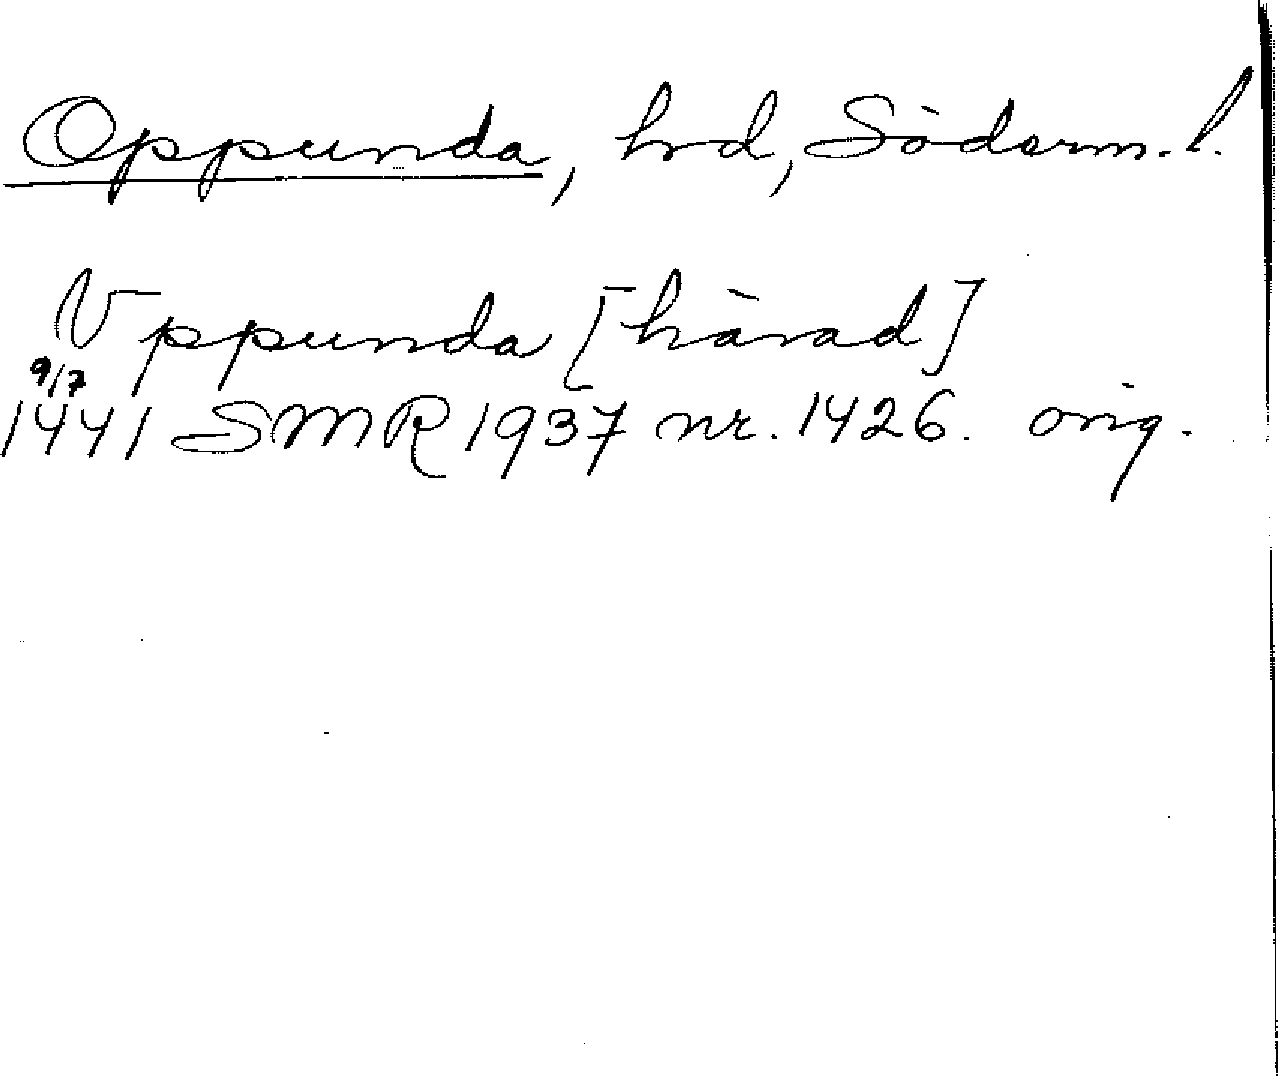 Oppunda, hrd, Söderm. l.
Vppunda [härad]
9/7
1441 SMR 1937 nr. 1426. orig.